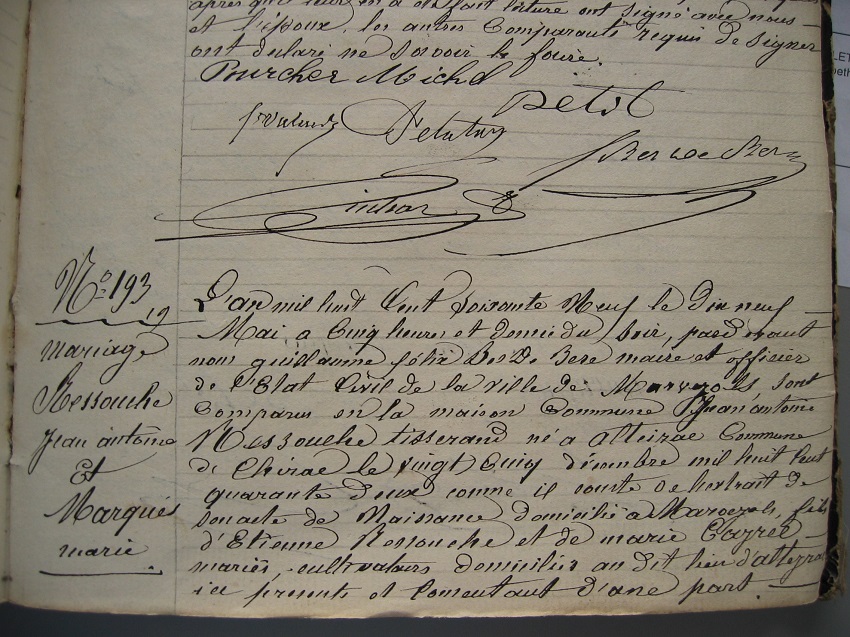 après que leur en a été fait lecture ont signé avec nous
et l'époux, les autres Comparants requis de signer
ont déclaré ne savoir le faire.
Burcher Michel
Petit
Delutin
Bes de Berc
N° 193
19
mariage
Ressouche
jean antoine
Et
Marqués
marie
L'an mil huit Cent Soixante Neuf le dix neuf
Mai, a Cinq heures et demie du Soir, pard evant
nous guillaume félix Bes De Berc maire et officier
de l'Etat Civil de la ville de Marvejols, sont
Comparus en la maison Commune Jean antoine
Ressouche tisserand né a Alteirac Commune
de Chirac le vingt Cinq décembre mil huit Cent
quarante deux comme il conste de l'extrait de
son acte de Naissance domicilié a Marvejols, fils
d'Etienne Ressouche et de marie Cayrel
mariés, cultivateurs domiciliés au dit lieu d'alteyrac
ici présents et Consentant d'une part.